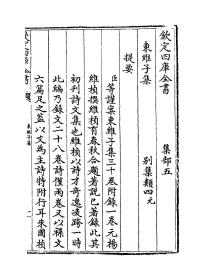 欽定四庫全書　集部五
東維子集　別集類四元
提要
臣等謹案東維子集三十卷附錄一卷元楊
維楨撰維楨有春秋合題著說已著錄此其
初刋詩文集也維楨以詩才奇逸凌跨一時
此編乃錄文二十八卷詩僅兩卷又以襍文
六篇足之蓋以文為主詩特附行耳朱國楨